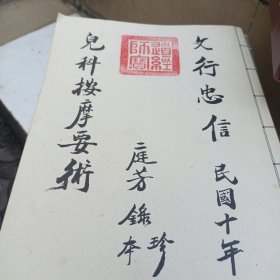 文行忠信
民國十年
道經師寶
庭芳錄本
珍
兒科按摩要術